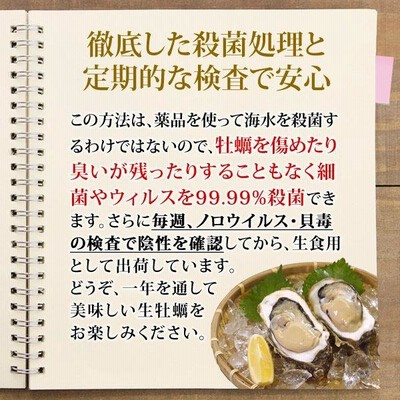 徹底した殺菌処理と
定期的な検査で安心
この方法は、薬品を使って海水を殺菌す
るわけではないので、牡蠣を傷めたり
臭いが残ったりすることもなく細
菌やウィルスを99.99%殺菌でき
ます。さらに毎週、ノロウイルス・貝毒
の検査で陰性を確認してから、生食用
として出荷しています。
どうぞ、一年を通して
美味しい生牡蠣を
お楽しみください。